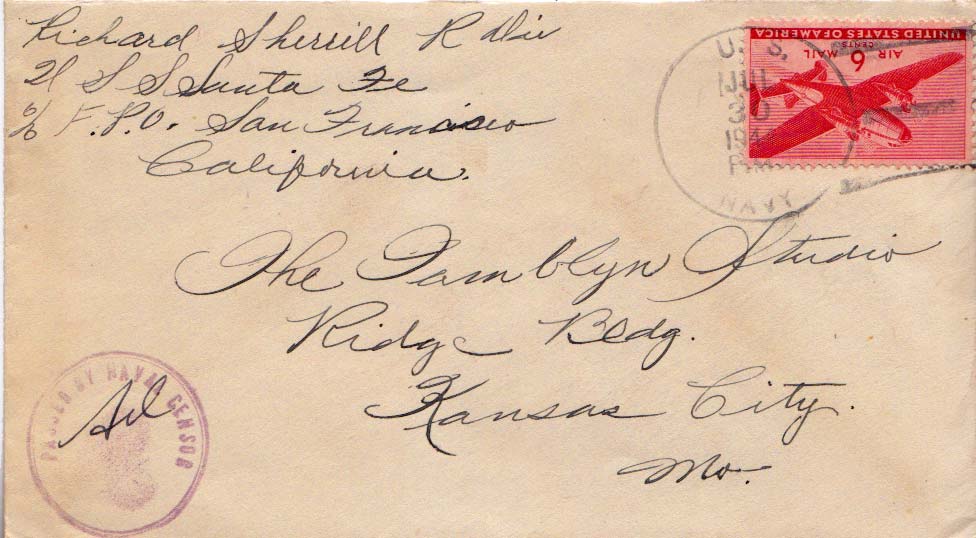 Richard Sherrill R
U S S Santa Fe
c/o F.P.O. San Francisco
California.
UNITED STATES OF AMERICA
6 CENTS
AIR MAIL
U. S.
JUL
30
1944
P.M.
NAVY
The Tamblyn Studio
Ridge Bldg.
Kansas City.
Mo.
PASSED BY NAVAL CENSOR